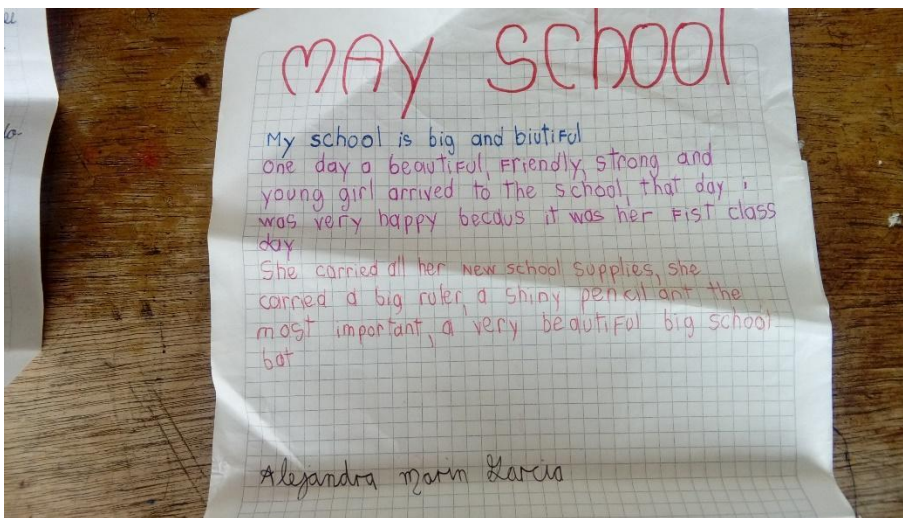 MAY SCHOOL
My school is big and biutiful
one day a beautiful, Friendly, strong and
young girl arrived to the school, that day i
was very happy becaus it was her Fist class
day
She carried all her new school supplies, she
carried a big ruler, a shiny pencil ant the
most important, a very beautiful big school
bat
Alejandra marin Garcia